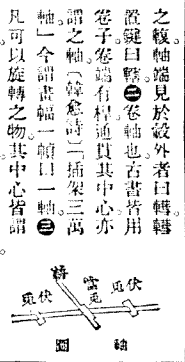 之輹軸端見於轂外者曰轊轊
置鍵曰轄㊁卷軸也古書皆用
卷子卷端有桿通貫其中心亦
謂之軸〔韓愈詩〕「插架三萬
軸」今謂書幅一幀曰一軸㊂
凡可以旋轉之物其中心皆謂
。
伏兔
當兔
伏兔
轊
軸
圖